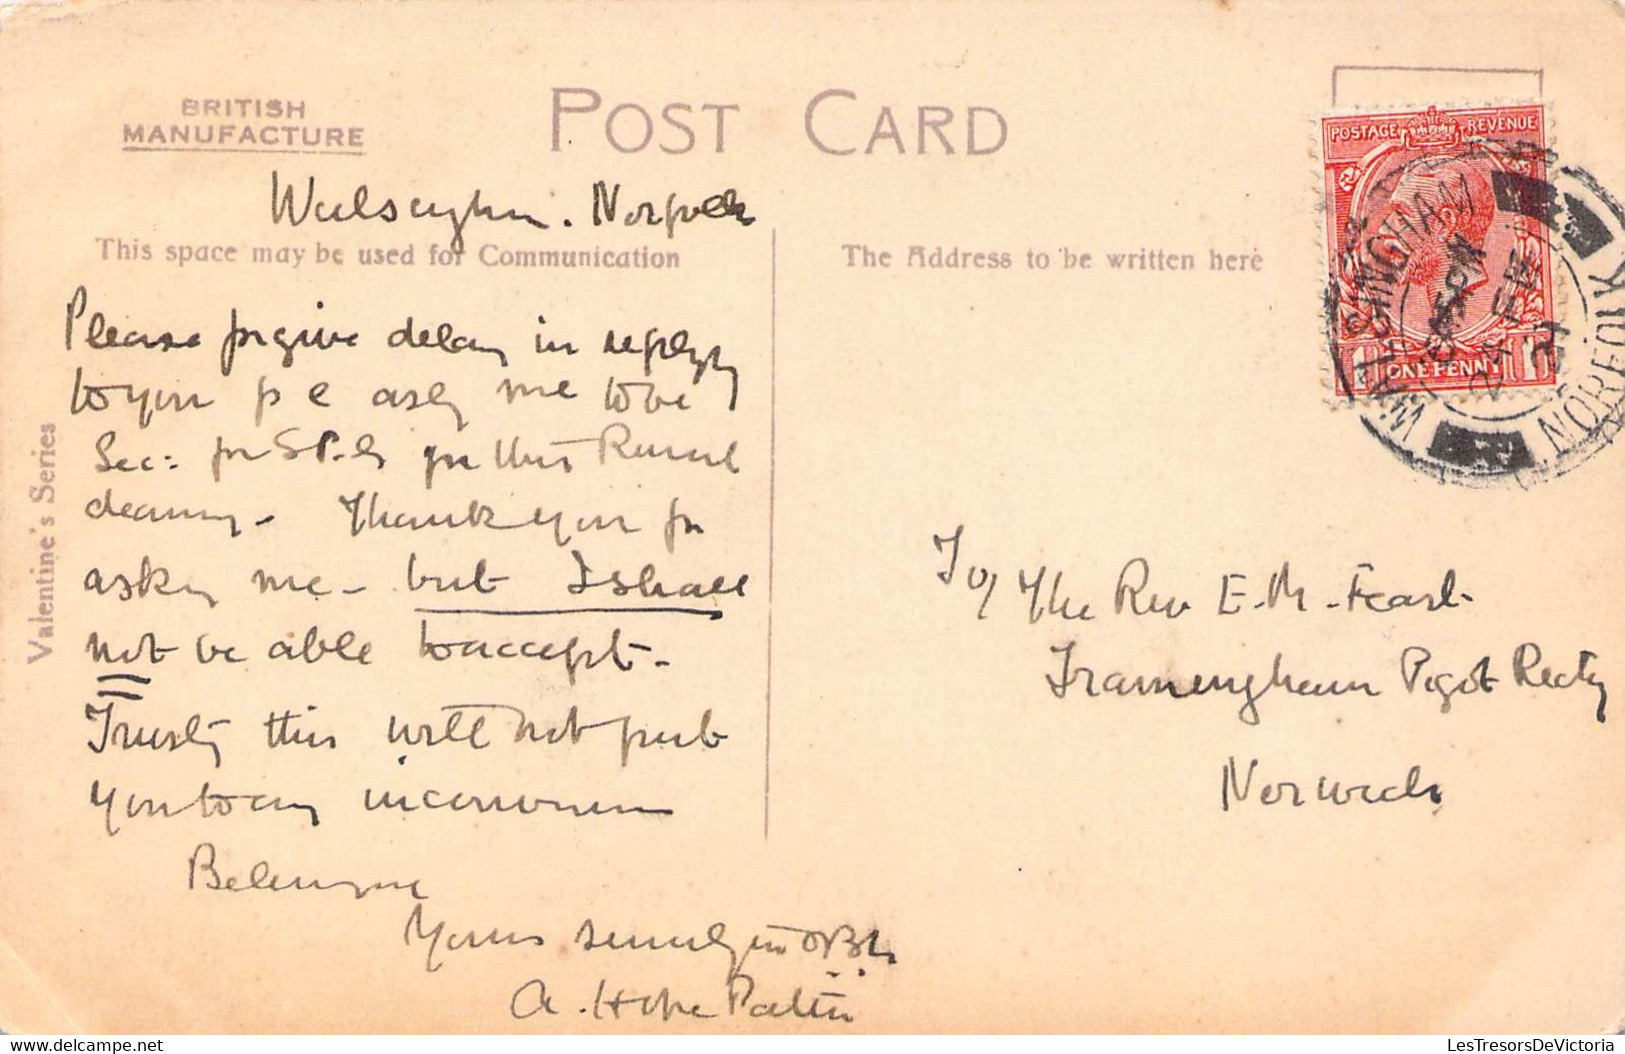 BRITISH
MANUFACTURE
POST CARD
Walsingham. Norfolk
This space may be used for Communication
The Address to be written here
POSTAGE REVENUE
1 ONE PENNY 1
WALSINGHAM
24 FE
21
NORFOLK
Valentine's Series
Please forgive delay in replying
to your p c asky me to be
Sec: for S.P.G for this Rural
deanery - Thank you for
asking me - but I shall
not be able to accept -
Trusty this will not put
you to any inconvenience
Believe me
Yours sincerely in
A. Hope Patten
To/ The Rev E. M. Fearl
Framingham Pigot Rectory
Norwich
delcampe.net
LesTresorsDeVictoria